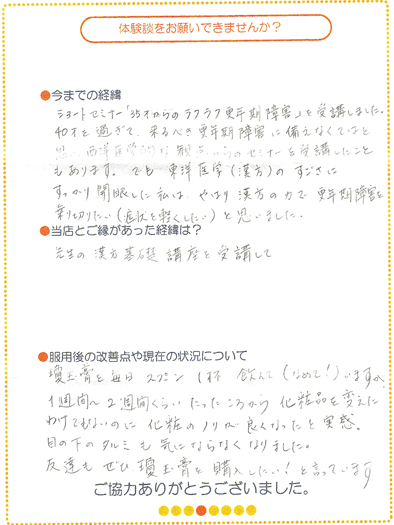 体験談をお願いできませんか？
●今までの経緯
ショートセミナー「35才からのラクラク更年期障害」を受講しました。
40才を過ぎて、来るべき更年期障害に備えなくてはと
思い、西洋医学的な観点からのセミナーを受講したこと
もあります。でも東洋医学(漢方)のすごさに
すっかり開眼した私は、やはり漢方の力で更年期障害を
乗り切りたい(症状を軽くしたい)と思いました。
●当店とご縁があった経緯は？
先生の漢方基礎講座を受講して
●服用後の改善点や現在の状況について
瓊玉膏を毎日スプーン1杯飲んで(なめて!)いますが、
1週間〜2週間くらいたったころから化粧品を変えた
わけでもないのに化粧のノリが良くなったと実感。
目の下のタルミも気にならなくなりました。
友達もぜひ瓊玉膏を購入したい!と言っています
ご協力ありがとうございました。